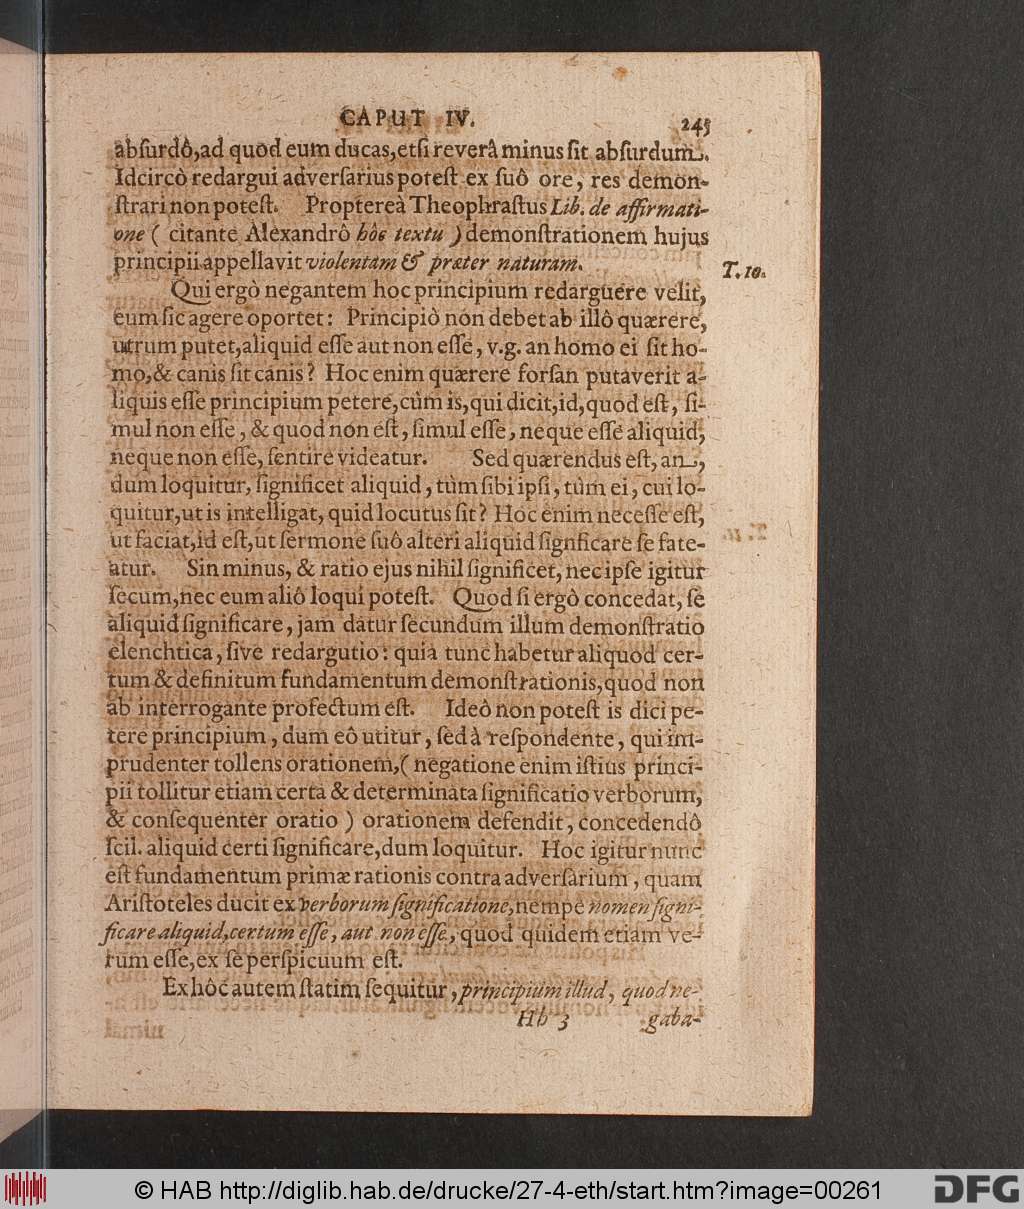 CAPUT IV. 245
abſurdô,ad quod eum ducas,etſi reverâ minus ſit abſurdum.
Idcircò redargui adverſarius poteſt ex ſuô ore, res demon-
ſtrari non poteſt. Proptereà Theophraſtus Lib. de affirmati-
one ( citante Alexandrô hôc textu ) demonſtrationem hujus
principii appellavit violentam & præter naturam.
T. 10.
Qui ergò negantem hoc principium redarguere velit,
eum ſic agere oportet: Principiò non debet ab illô quærere,
utrum putet,aliquid eſſe aut non eſſe, v.g. an homo ei ſit ho-
mo,& canis ſit canis? Hoc enim quærere forſan putaverit a-
liquis eſſe principium petere,cùm is,qui dicit,id,quod eſt, ſi-
mul non eſſe, & quod non eſt, ſimul eſſe, neque eſſe aliquid,
neque non eſſe, ſentire videatur. Sed quærendus eſt, an,
dum loquitur, ſignificet aliquid, tùm ſibi ipſi, tùm ei, cui lo-
quitur,ut is intelligat, quid locutus ſit? Hoc enim neceſſe eſt,
ut faciat,id eſt,ut ſermone ſuô alteri aliquid ſignficare ſe fate-
atur. Sin minus, & ratio ejus nihil ſignificet, nec ipſe igitur
ſecum,nec eum aliô loqui poteſt. Quod ſi ergò concedat, ſe
aliquid ſignificare, jam datur ſecundum illum demonſtratio
elenchtica, ſive redargutio: quia tunc habetur aliquod cer-
tum & definitum fundamentum demonſtrationis,quod non
ab interrogante profectum eſt. Ideò non poteſt is dici pe-
tere principium, dum eô utitur, ſed à reſpondente, qui im-
prudenter tollens orationem,( negatione enim iſtius princi-
pii tollitur etiam certa & determinata ſignificatio verborum,
& conſequenter oratio ) orationem defendit, concedendô
ſcil. aliquid certi ſignificare,dum loquitur. Hoc igitur nunc
eſt fundamentum primæ rationis contra adverſarium, quam
Ariſtoteles ducit ex verborum ſignificatione,nempe nomen ſigni-
ficare aliquid,certum eſſe, aut non eſſe, quod quidem etiam ve-
rum eſſe,ex ſe perſpicuum eſt.
Ex hôc autem ſtatim ſequitur, principium illud, quod ne-
Hh 3 gaba-
© HAB http://diglib.hab.de/drucke/27-4-eth/start.htm?image=00261
DFG